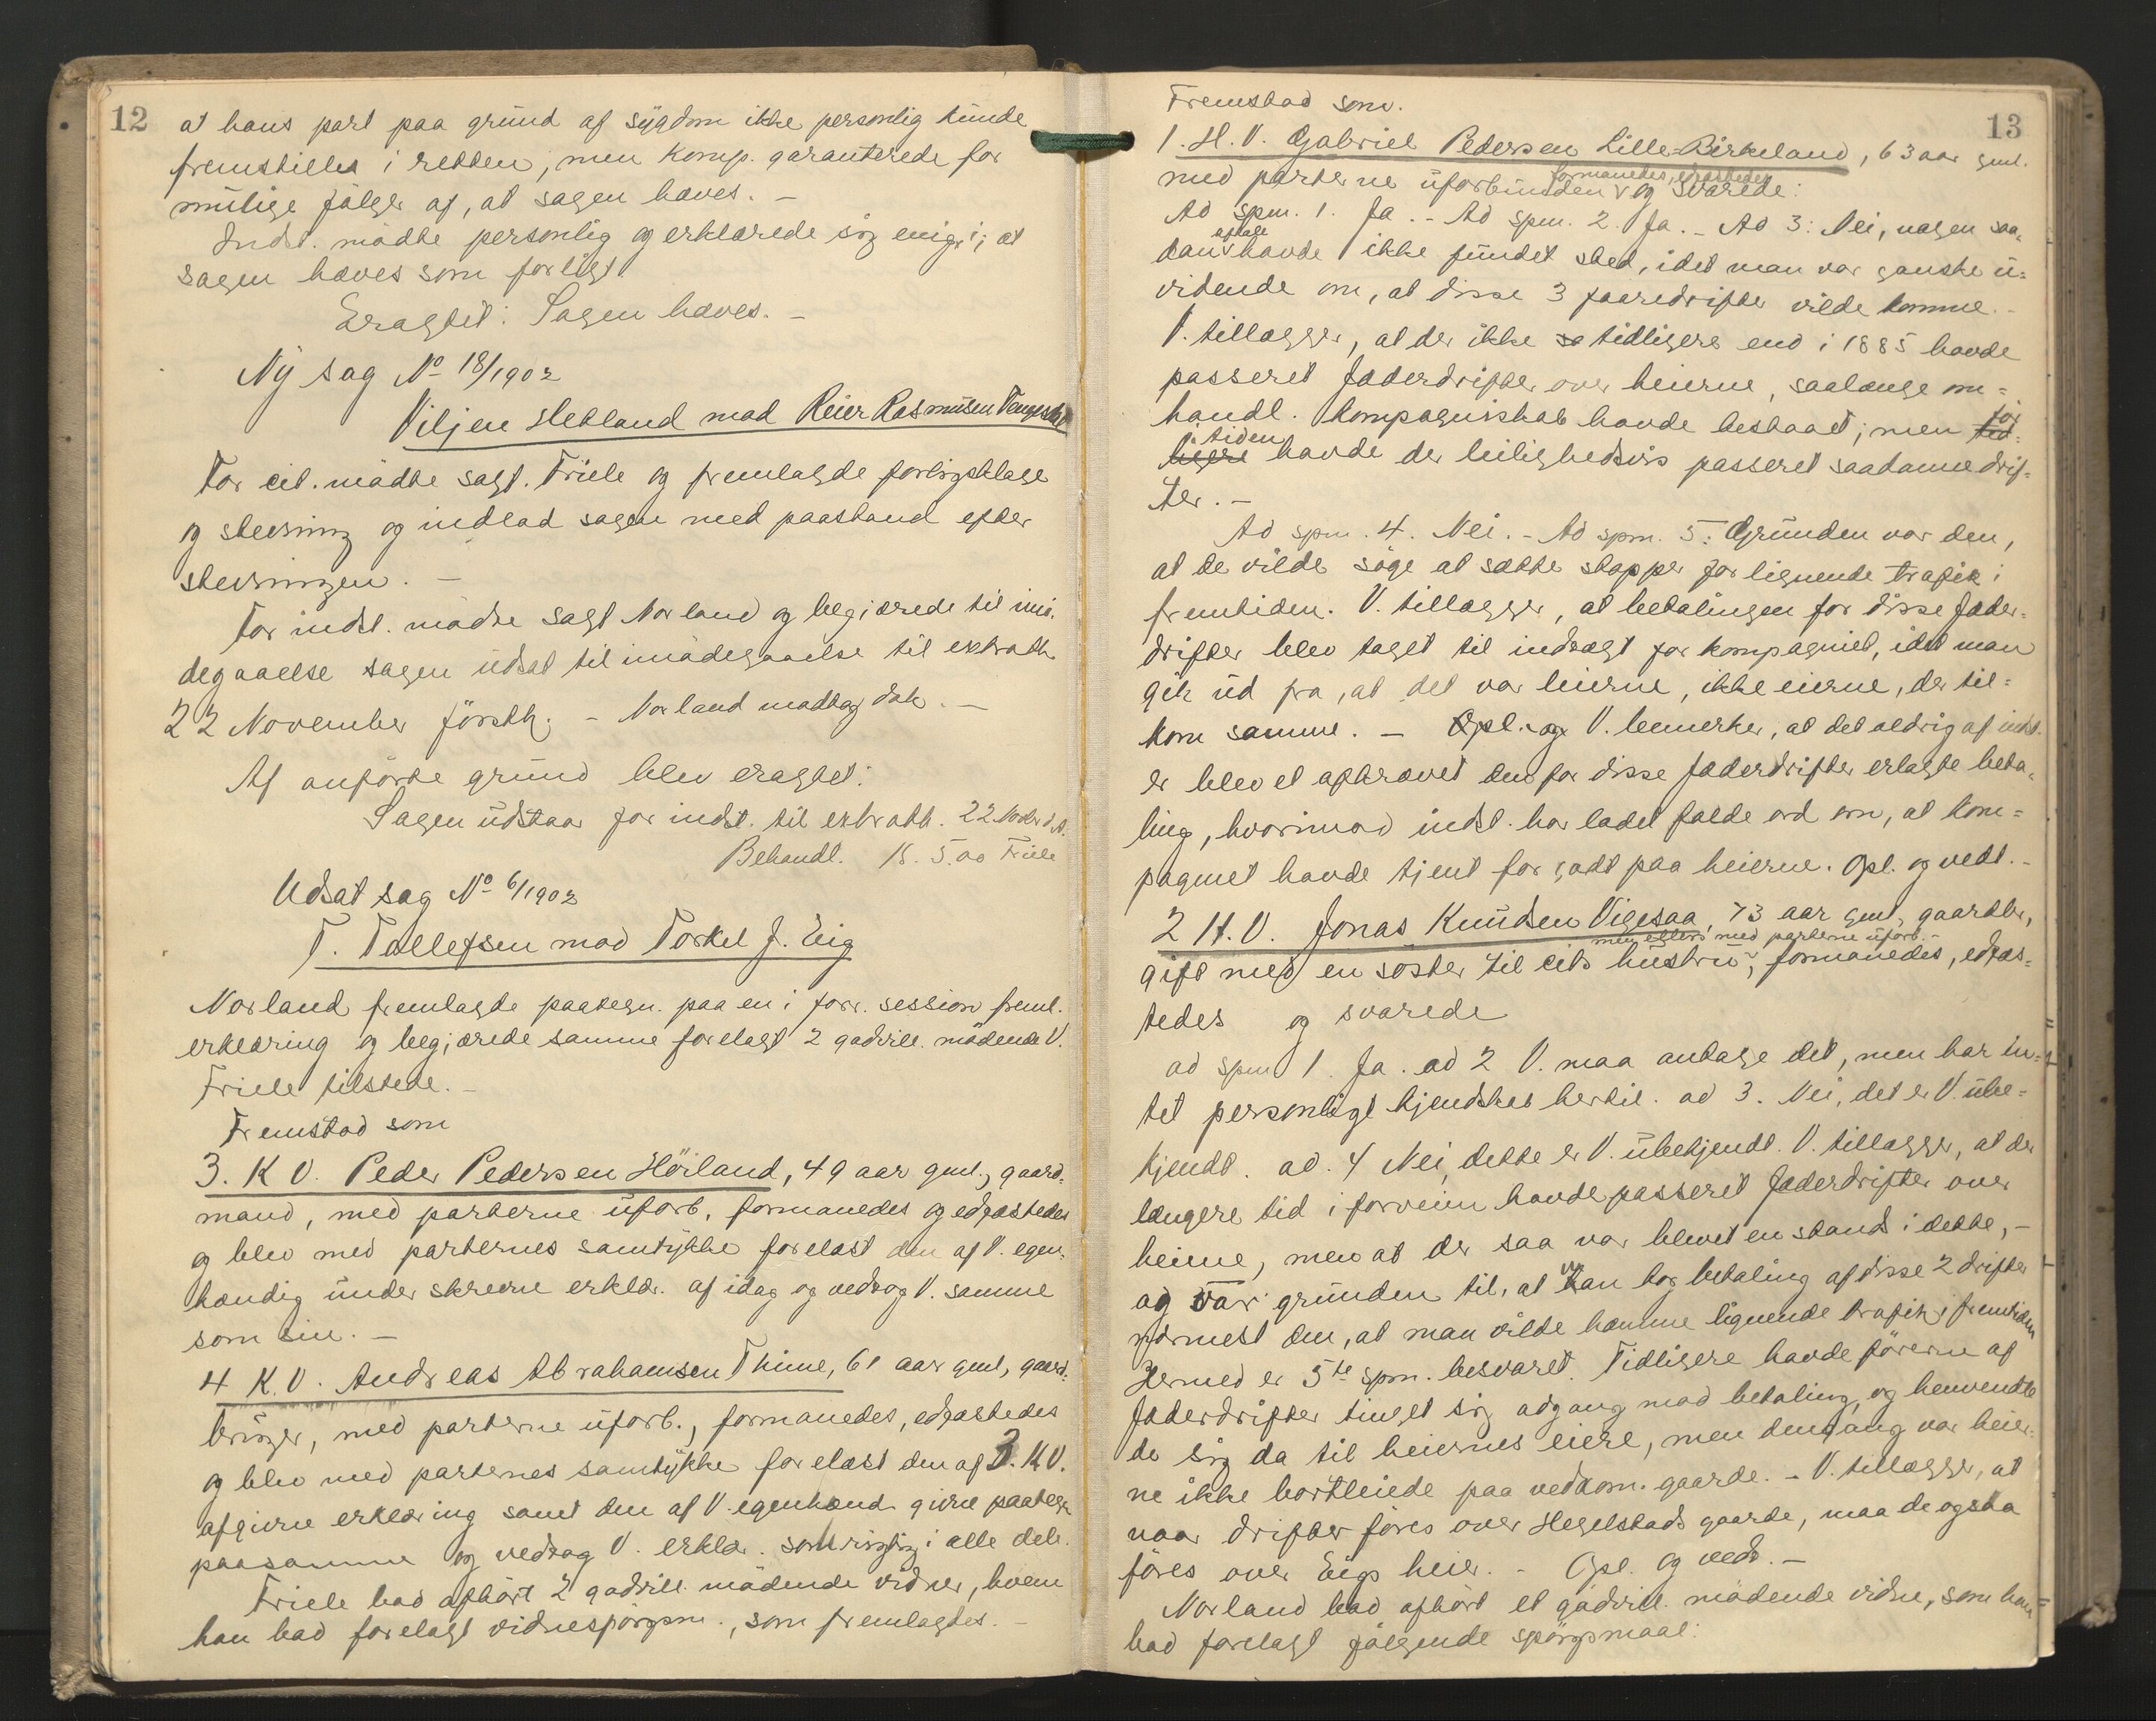 12
at hans part paa grund af sygdom ikke personlig kunde
fremstilles i retten, men komp. garanterede for
mulige følger af, at sagen hæves. –
Indst. mødte personlig og erklærede sig enig i, at
sagen hæves som forligt.
Eragtet: Sagen hæves. –
Ny sag No 18/1902
Viljen Hetland mod Reier Rasmusen
For cit. mødte sagf. Friele og fremlagde forligsklage
og stevning og indlod sagen med paastand efter
stevningen. –
For indst. mødte sagf Norland og begjærede til imø-
degaaelse sagen udsat til imødegaaelse til extrarth
22 November førsth. – Norland modtog dok. –
Af anførte grund blev eragtet:
Sagen udstaar for indst. til extrath. 22 Novbr d.A.
Behandl. K. 5.00 Friele
Udsat sag No 6/1902
T. Tollefsen mod Torkel J. Eig
Norland fremlagde paategn. paa en i forr. session freml.
erklæring og begjærede samme forelagt 2 godvill. mødende V.
Friele tilstede. –
Fremstod som
3. K V. Peder Pedersen Höiland, 49 aar gml., gaard-
mand, med parterne uforb., formanedes og edfæstedes
og blev med parternes samtykke forelæst den af V. egen-
hændig underskrevne erklær. af idag og vedtog V. samme
som sin. –
4 K.V. Andreas Abrahamsen Thime, 61 aar gml, gaard-
bruger, med parterne uforb., formanedes, edfæstedes
og blev med parternes samtykke forelæst den af 3. KV.
afgivne erklæring samt den af V. egenhænd. givne paategn
paa samme og vedtog V. erklær. som rigtig i alle dele.
Friele bad afhørt 2 godvill. mødende vidner, hvem
han bad forelagt vidnespørgsm., som fremlagdes. –
13
Fremstod som.
1. H.V. Gabriel Pedersen Lille-Birkeland, 63 aar gml.
formanedes, edfæstedes
med parterne uforbunden og svarede:
Ad spm. 1. Ja. – Ad spm. 2. Ja. – Ad 3: Nei, nogen saa-
aftale
dan havde ikke fundet sted, idet man var ganske u-
vidende om, at disse 3 faaredrifter vilde komme. –
V. tillægger, at der ikke tidligere end i 1885 havde
passeret Jæderdrifter over heierne, saalænge om-
handl. kompagniskab havde bestaaet; men før
tiden
havde der leilighedsvis passeret saadanne drif-
ter. –
Ad spm. 4. Nei. – Ad spm. 5: Grunden var den,
at de vilde søge at sætte stopper for lignende trafik i
fremtiden. V. tillægger, at betalingen for disse Jæder-
drifter blev taget til indtægt for kompagniet, idet man
gik ud fra, at det var leierne, ikke eierne, der til-
kom samme. – Opl. og V. bemerker, at det aldrig af indst.
er blevet afkrævet den for disse Jæderdrifter erlagte beta-
ling, hvorimod indst. har ladet falde ord om, at kom-
pagniet havde tjent for godt paa heierne. Opl. og vedt. –
2 H.V. Jonas Knudsen Vigesaa, 73 aar gml, gaardbr.,
men ellers med parterne uforb. –
gift med en søster til cits hustru, formanedes, edfæs-
tedes og svarede
ad spm 1. Ja. ad 2 V. maa antage det, men har in-
tet personligt kjendskab hertil. ad 3. Nei, det er V. ube-
kjendt. ad. 4 Nei, dette er V. ubekjendt. V. tillægger, at der
længere tid i forveien havde passeret Jæderdrifter over
heiene, men at der saa var blevet en stands i dette, –
og var grunden til, at man tog betaling af disse 2 drifter
nærmest den, at man vilde hæmme lignende trafik i fremtiden
Hermed er 5te spm. besvaret. Tidligere havde førerne af
Jæderdrifter tinget sig adgang mod betaling, og henvendte
de sig da til heiernes eiere, men dengang var heier-
ne ikke bortleiede paa vedkom. gaarde. – V. tillægger, at
naar drifter føres over Hegelstads gaarde, maa de ogsaa
føres over Eigs heier. – Opl. og vedt. –
Norland bad afhørt et godvill. mødende vidne, som han
bad forelagt følgende spørgsmaal: